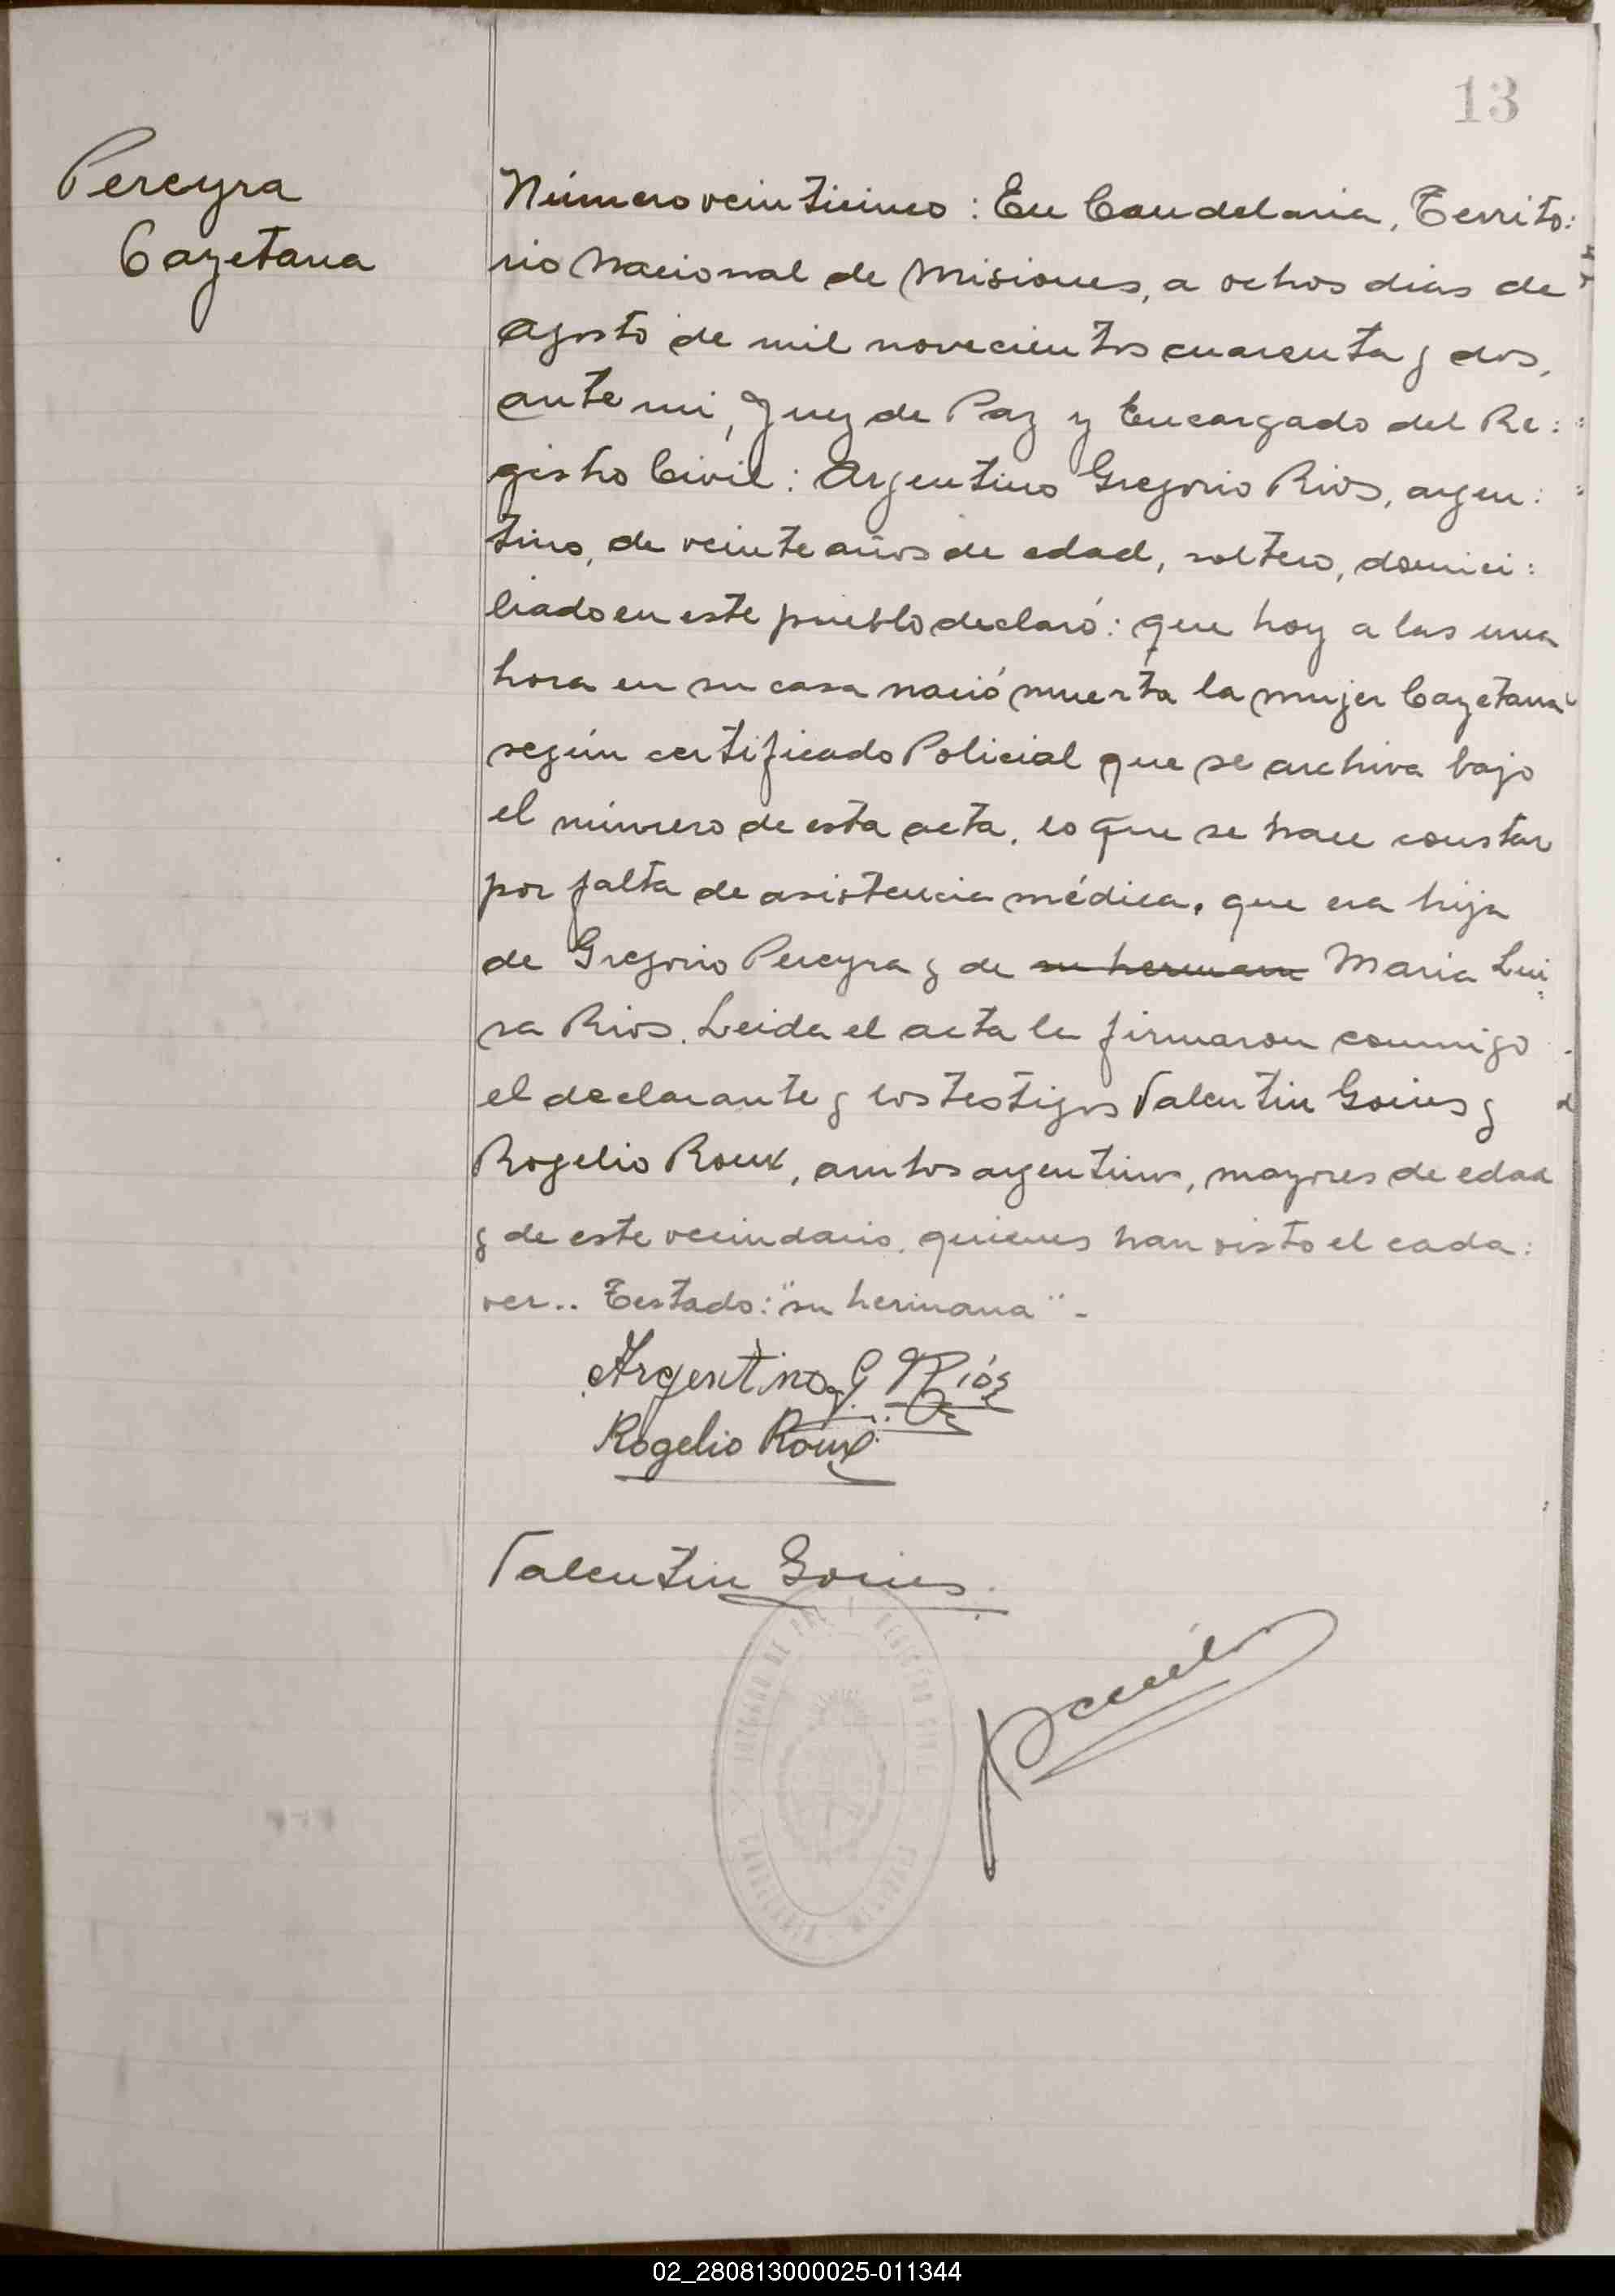 13
Pereyra
Cayetana
Número veinticinco: En Candelaria, Territo:
rio Nacional de Misiones, a ochos dias de
Agosto de mil novecientos cuarenta y dos,
ante mi, Juez de Paz y Encargado del Re:
gistro Civil: Argentino Gregorio Rios, argen:
tino, de veinte años de edad, soltero, domici:
liado en este pueblo declaró: que hoy a las una
hora en su casa nació muerta la mujer Cayetana
según certificado Policial que se archiva bajo
el número de esta acta, lo que se hace constar
por falta de asistencia médica. que era hija
de Gregorio Pereyra y de su hermana Maria Lui:
sa Rios. Leida el acta la firmaron conmigo
el declarante y los testigos Valentin Goires y
Rogelio Roux, ambos argentinos, mayores de edad
y de este vecindario, quienes han visto el cada:
ver.. Testado: "su hermana" -
Argentino G Ríos
Rogelio Roux
Valentin Goires
JUZGADO DE PAZ Y REGISTRO CIVIL
CANDELARIA
02_280813000025-011344